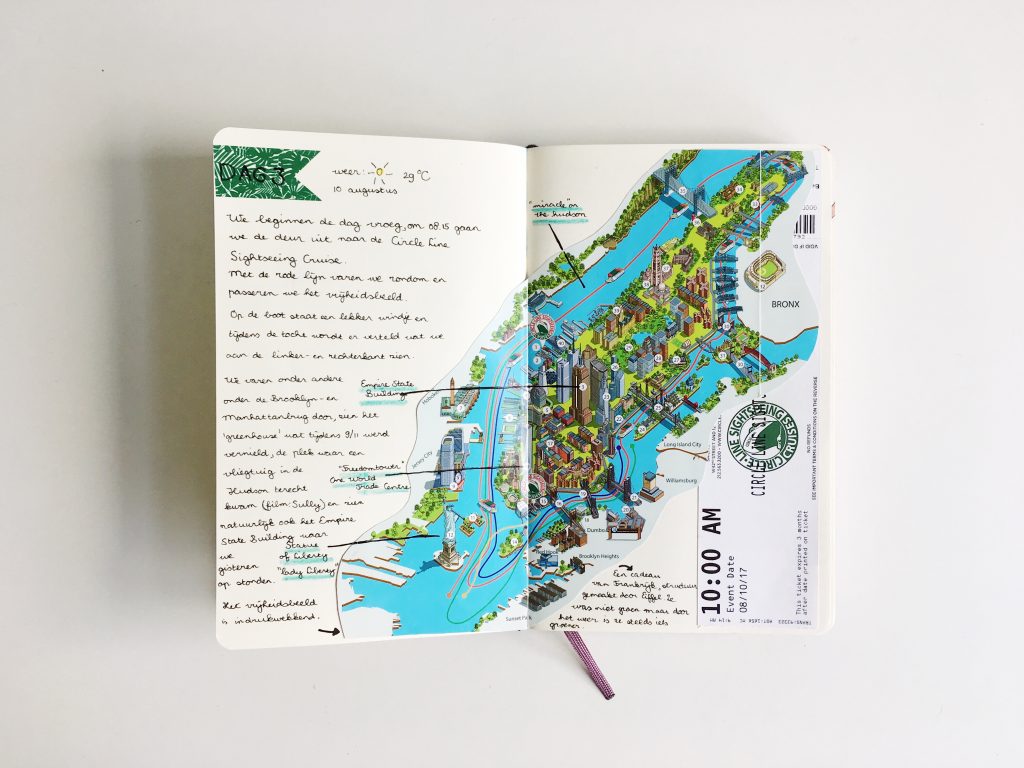 DAG 3
weer: 29°C
10 augustus
We beginnen de dag vroeg, om 08.15 gaan
we de deur uit naar de Circle Line
Sightseeing Cruise.
Met de rode lijn varen we rondom en
passeren we het vrijheidsbeeld.
Op de boot staat een lekker windje en
tijdens de tocht wordt er verteld wat we
aan de linker- en rechterkant zien.
We varen onder andere
onder de Brooklyn- en
Manhattanbrug door, zien het
'greenhouse' wat tijdens 9/11 werd
vermeld, de plek waar een
vliegtuig in de
Hudson terecht
kwam (film: Sully) en zien
natuurlijk ook het Empire
State Building waar
we
gisteren
op stonden.
Het vrijheidsbeeld
is indrukwekkend.
Empire State
Building
"Freedomtower"
One World
Trade Centre
Statue
of Liberty
"lady Liberty"
"miracle" on
the hudson
Hoboken
Jersey City
BRONX
Long Island City
Williamsburg
Dumbo
Brooklyn Heights
Sunset Park
Een cadeau
van Frankrijk, structuur
gemaakt door Eiffel. Ze
was niet groen maar door
het weer is ze steeds iets
groener.
CIRCLE LINE SIGHTSEEING CRUISES
10:00 AM
Event Date
08/10/17
This ticket expires 3 months
after date printed on ticket
NO REFUNDS
SEE IMPORTANT TERMS & CONDITIONS ON THE REVERSE
VOID IF